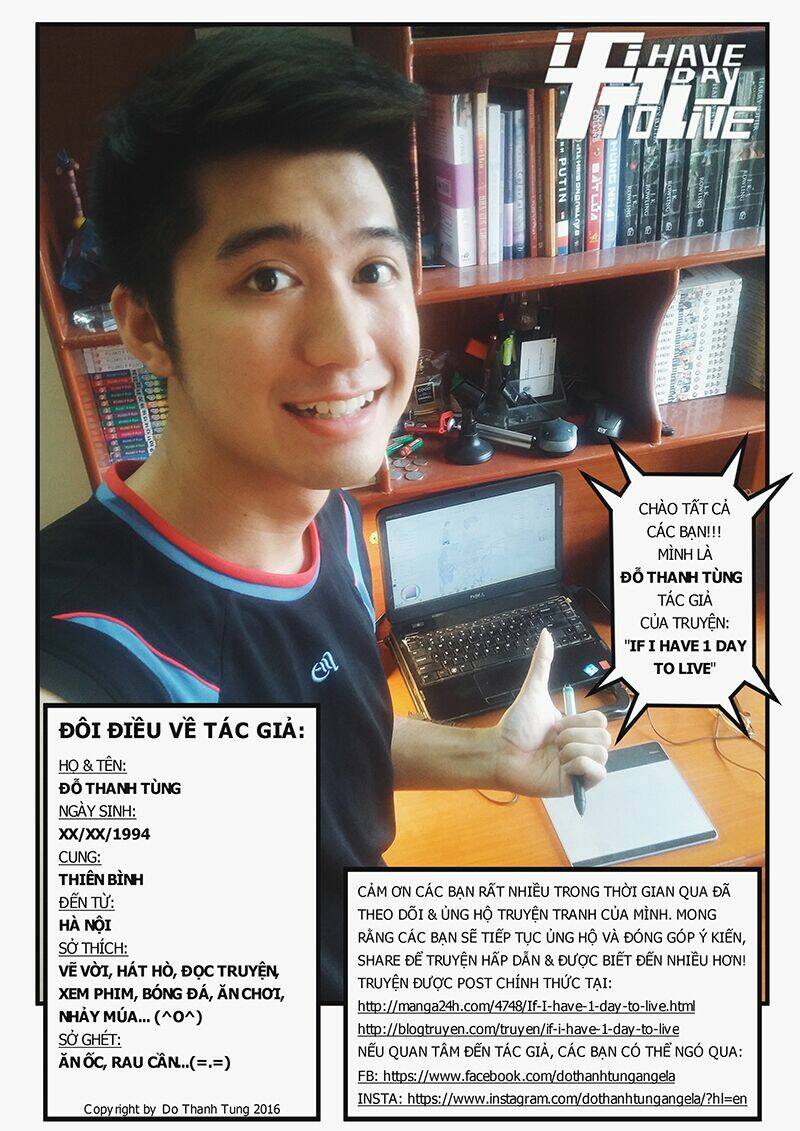 IF I HAVE
1 DAY
TO LIVE
PUTIN
BẮT LỬA
HÙNG NHẠI
J.K.
ROWLING
DELL
CHÀO TẤT CẢ
CÁC BẠN!!!
MÌNH LÀ
ĐỖ THANH TÙNG
TÁC GIẢ
CỦA TRUYỆN:
"IF I HAVE 1 DAY
TO LIVE"
ĐÔI ĐIỀU VỀ TÁC GIẢ:
HỌ & TÊN:
ĐỖ THANH TÙNG
NGÀY SINH:
XX/XX/1994
CUNG:
THIÊN BÌNH
ĐẾN TỪ:
HÀ NỘI
SỞ THÍCH:
VẼ VỜI, HÁT HÒ, ĐỌC TRUYỆN,
XEM PHIM, BÓNG ĐÁ, ĂN CHƠI,
NHẢY MÚA... (^O^)
SỞ GHÉT:
ĂN ỐC, RAU CẦN...(=.=)
Copyright by Do Thanh Tung 2016
CẢM ƠN CÁC BẠN RẤT NHIỀU TRONG THỜI GIAN QUA ĐÃ
THEO DÕI & ỦNG HỘ TRUYỆN TRANH CỦA MÌNH. MONG
RẰNG CÁC BẠN SẼ TIẾP TỤC ỦNG HỘ VÀ ĐÓNG GÓP Ý KIẾN,
SHARE ĐỂ TRUYỆN HẤP DẪN & ĐƯỢC BIẾT ĐẾN NHIỀU HƠN!
TRUYỆN ĐƯỢC POST CHÍNH THỨC TẠI:
http://manga24h.com/4748/If-I-have-1-day-to-live.html
http://blogtruyen.com/truyen/if-i-have-1-day-to-live
NẾU QUAN TÂM ĐẾN TÁC GIẢ, CÁC BẠN CÓ THỂ NGÓ QUA:
FB: https://www.facebook.com/dothanhtungangela
INSTA: https://www.instagram.com/dothanhtungangela/?hl=en